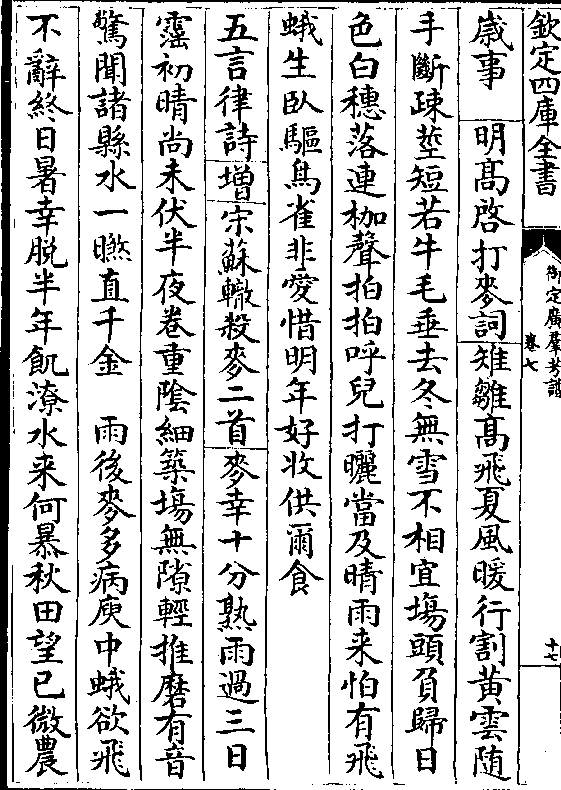 欽定四庫全書
御定廣羣芳譜
卷七
十七
歲事　明髙啓打麥詞雉雛髙飛夏風暖行割黄雲随
手斷疎莖短若牛毛垂去冬無雪不相宜塲頭負歸日
色白穗落連枷聲拍拍呼兒打曬當及晴雨来怕有飛
蛾生臥驅鳥雀非愛惜明年好收供爾食
五言律詩增宋蘇轍殺麥二首麥幸十分熟雨過三日
霪初晴尚未伏半夜卷重隂細築塲無隙輕推磨有音
驚聞諸縣水一㬠直千金　雨後麥多病庾中蛾欲飛
不辭終日暑幸脱半年飢潦水来何暴秋田望已微農